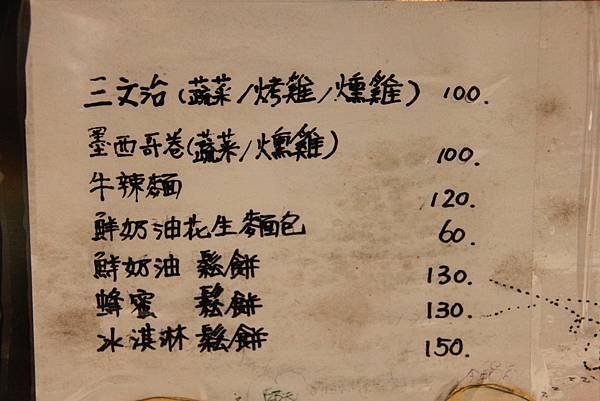 三文治(蔬菜/烤雞/燻雞) 100.
墨西哥卷(蔬菜/燻雞) 100.
牛辣麵 120.
鮮奶油花生麵包 60.
鮮奶油 鬆餅 130.
蜂蜜 鬆餅 130.
冰淇淋 鬆餅 150.